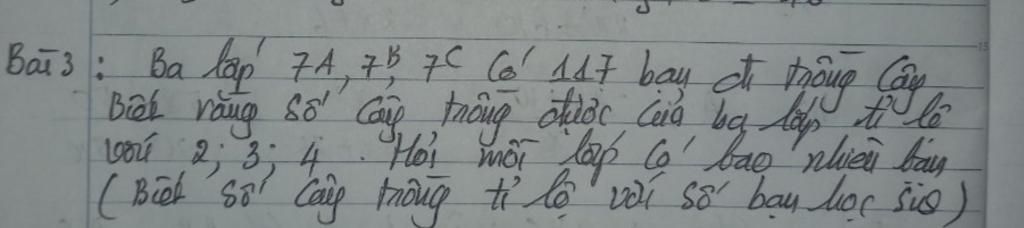 Bài 3: Ba lớp 7A, 7B, 7C Có 117 bạn đi trồng Cây
Biết rằng Số Cây trồng được của ba lớp tỉ lệ
với 2; 3; 4. Hỏi mỗi lớp Có bao nhiêu bạn
(Biết Số Cây trồng tỉ lệ với số bạn học sinh)